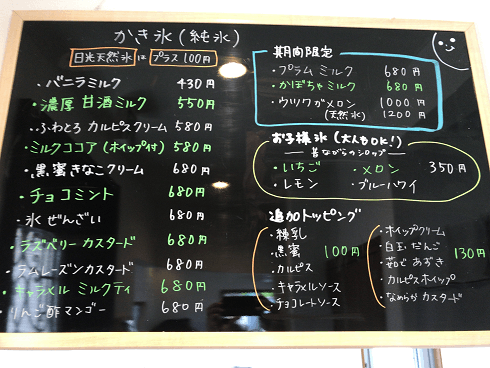 かき氷(純氷)
日光天然氷 は プラス100円
・バニラミルク 430円
・濃厚 甘酒ミルク 550円
・ふわとろ カルピスクリーム 580円
・ミルクココア(ホイップ付) 580円
・黒蜜きなこクリーム 680円
・チョコミント 680円
・氷ぜんざい 680円
・ラズベリー カスタード 680円
・ラムレーズンカスタード 680円
・キャラメル ミルクティ 680円
・りんご酢マンゴー 680円
期間限定
・プラム ミルク 680円
・かぼちゃミルク 680円
・ウリワカメロン 1000円
(天然氷) 1200円
お子様氷(大人もOK!)
昔ながらのシロップ
・いちご ・メロン 350円
・レモン ・ブルーハワイ
追加トッピング
・練乳
・黒蜜
・カルピス
・キャラメルソース
・チョコレートソース
100円
・ホイップクリーム
・白玉だんご
・茹で あずき
・カルピスホイップ
・なめらか カスタード
130円